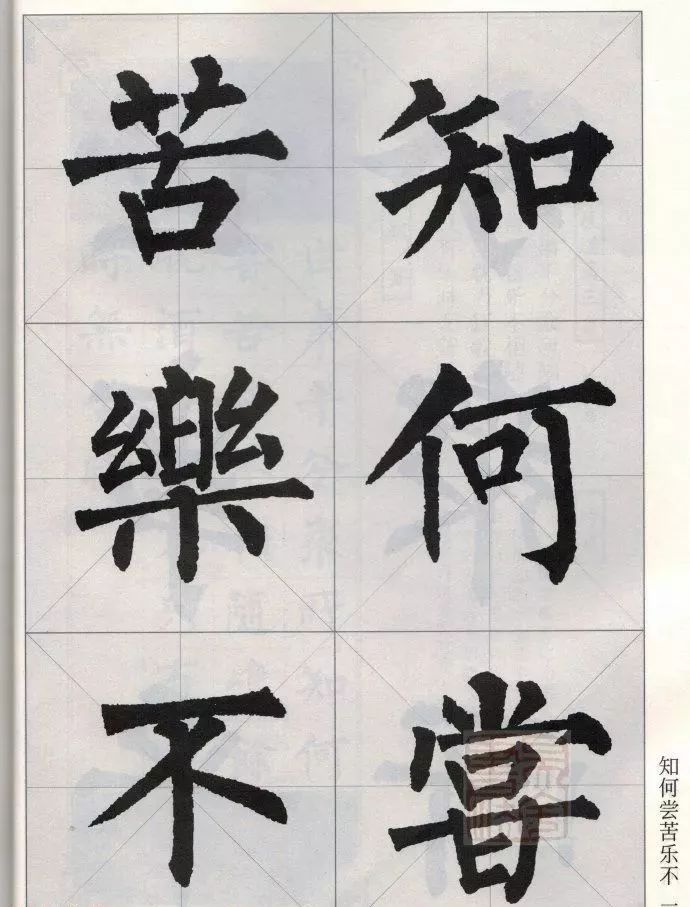 知何嘗
苦樂不
知何尝苦乐不一